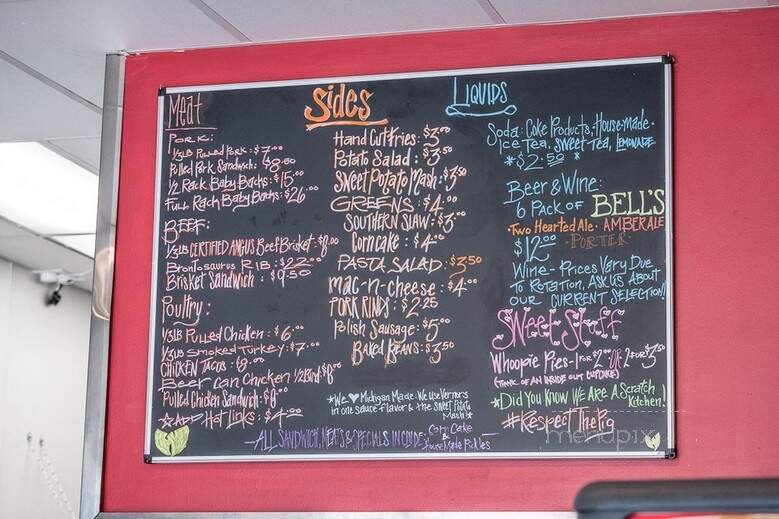 Meat
Pork:
1/3LB Pulled Pork: $7.00
Pulled Pork Sandwich: $8.00
1/2 Rack Baby Backs: $15.00
Full Rack Baby Backs: $26.00
BEEF:
1/3LB CERTIFIED ANGUS Beef Brisket: $8.00
Brontosaurus RIB: $22.00
Brisket Sandwich: $9.50
Poultry:
1/3LB Pulled Chicken: $6.00
1/3LB Smoked Turkey: $7.00
CHICKEN TACOS: $8.00
Beer Can Chicken 1/2 Bird: $8.00
Pulled Chicken Sandwich: $8.00
ADD Hot Links: $4.00
Sides
Hand Cut Fries: $3.00
Potato Salad: $3.50
Sweet Potato Mash: $3.50
GREENS: $4.00
SOUTHERN SLAW: $3.00
Corn cake: $4.00
PASTA SALAD: $3.50
mac-n-cheese: $4.00
PORK RINDS: $2.25
Polish Sausage: $5.00
BAKED BEANS: $3.50
*We ♥ Michigan Made: We Use Vernors
in one sauce flavor & the Sweet Potato
Mash!*
-ALL SANDWICH, MEATS & SPECIALS INCLUDE: Corn Cake
&
House Made Pickles
LIQUIDS
Soda: Coke Products, House-made
Ice Tea, Sweet Tea, LEMONADE
*$2.50*
Beer & Wine:
6 Pack OF BELL'S
Two Hearted Ale - AMBER ALE
$12.00 - PORTER
Wine - Prices Vary Due
To Rotation, Ask Us About
OUR CURRENT SELECTION!
Sweet Stuff
Whoopie Pies - 1 For $2.00 OR 2 For $3.50
(THINK OF AN INSIDE OUT CUPCAKE)
*Did You Know We Are A Scratch
Kitchen!
#RespectThePig
menupix